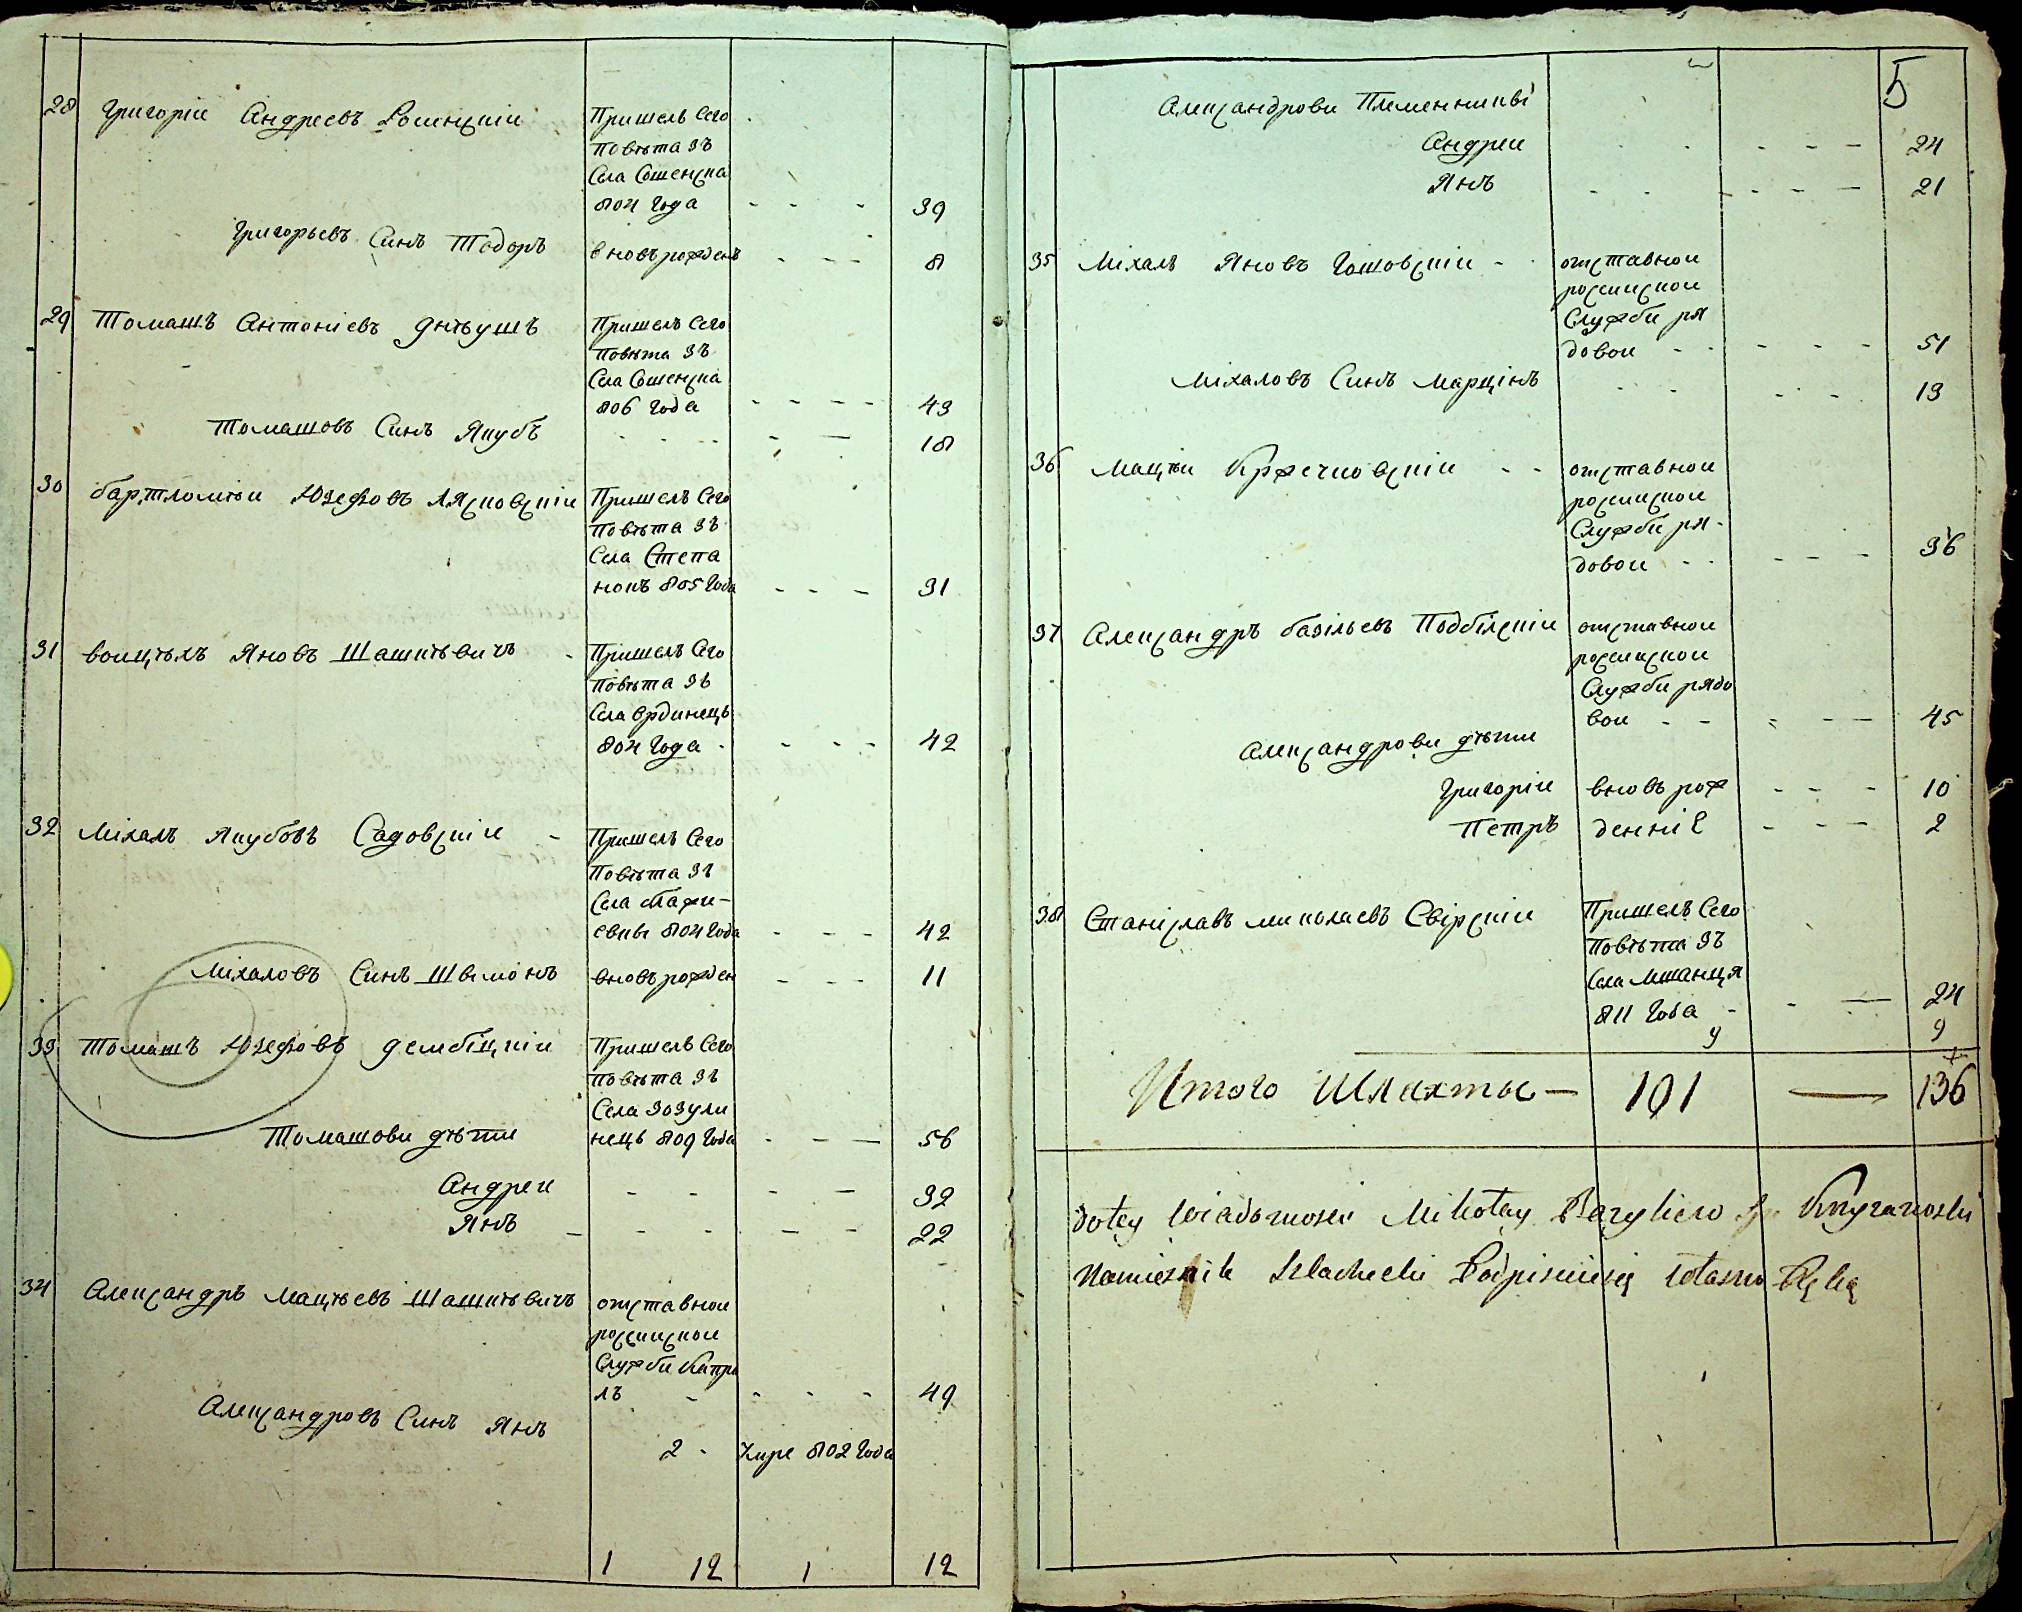 28 Григоріи Андреевъ Росинскіи Пришелъ Сего
Повѣта зъ
Села Сошенска
804 Года - - - 39
Григорьевъ Синъ Тодоръ вновърожденъ - - - 8
29 Томашъ Антоніевъ Днѣушъ Пришелъ Сего
Повѣта зъ
Села Сошенска
806 Года - - - - 43
Томашовъ Синъ Якубъ - - - - — 18
30 бартломѣи Юзефовъ Лясковскіи Пришелъ Сего
Повѣта зъ
Села Степа
нокъ 805 Года - - - 31
31 воицѣхъ Яновъ Шашкѣвичъ - Пришелъ Сего
Повѣта зъ
Села ординецъ
804 Года - - - - 42
32 Міхалъ Якубовъ Садовскіи - Пришелъ Сего
Повѣта зъ
Села
евки 804 Года - - - 42
Міхаловъ Синъ Шимонъ вновърожден - - - 11
33 Томашъ Юзефовъ дембіцкіи Пришелъ Сего
Повѣта зъ
Села Зозули
нецъ 809 Года - - — 56
Томашови дѣти
Андреи - - - — 32
Янъ - - - - - - 22
34 Александръ Мацѣевъ Шашкѣвичъ отставнои
россискои
Службы Капра
лъ - - - - 49
Александровъ Синъ Янъ 2 - Умре 802 Года
1 12 1 12
5
Александрови Племенники
Андреи - - - - — 24
Янъ - - - - - — 21
35 Міхалъ Яновъ Гошовскіи - отставнои
россискои
Службы ря
довои - - - - - 51
Міхаловъ Синъ Марцінъ - - - - 13
36 Мацѣи Кржечковскіи - - отставнои
россискои
Службы ря-
довои - - - - — 36
37 Александръ базільевъ Подбілскіи отставнои
россискои
Службы рядо
вои - - - - — 45
Александрови дѣти
Григоріи вновърож - - - 10
Петръ денніе - - — 2
38 Станіславъ миколаевъ Свірскіи Пришелъ Сего
Повѣта зъ
Села Мшанця
811 Года - - — 24
9 9
Итого Шляхты — 101 — 136
dotey wiadomosci Mikołay
Namiesnik Szlachecki Podpisuiesię własno Ręką